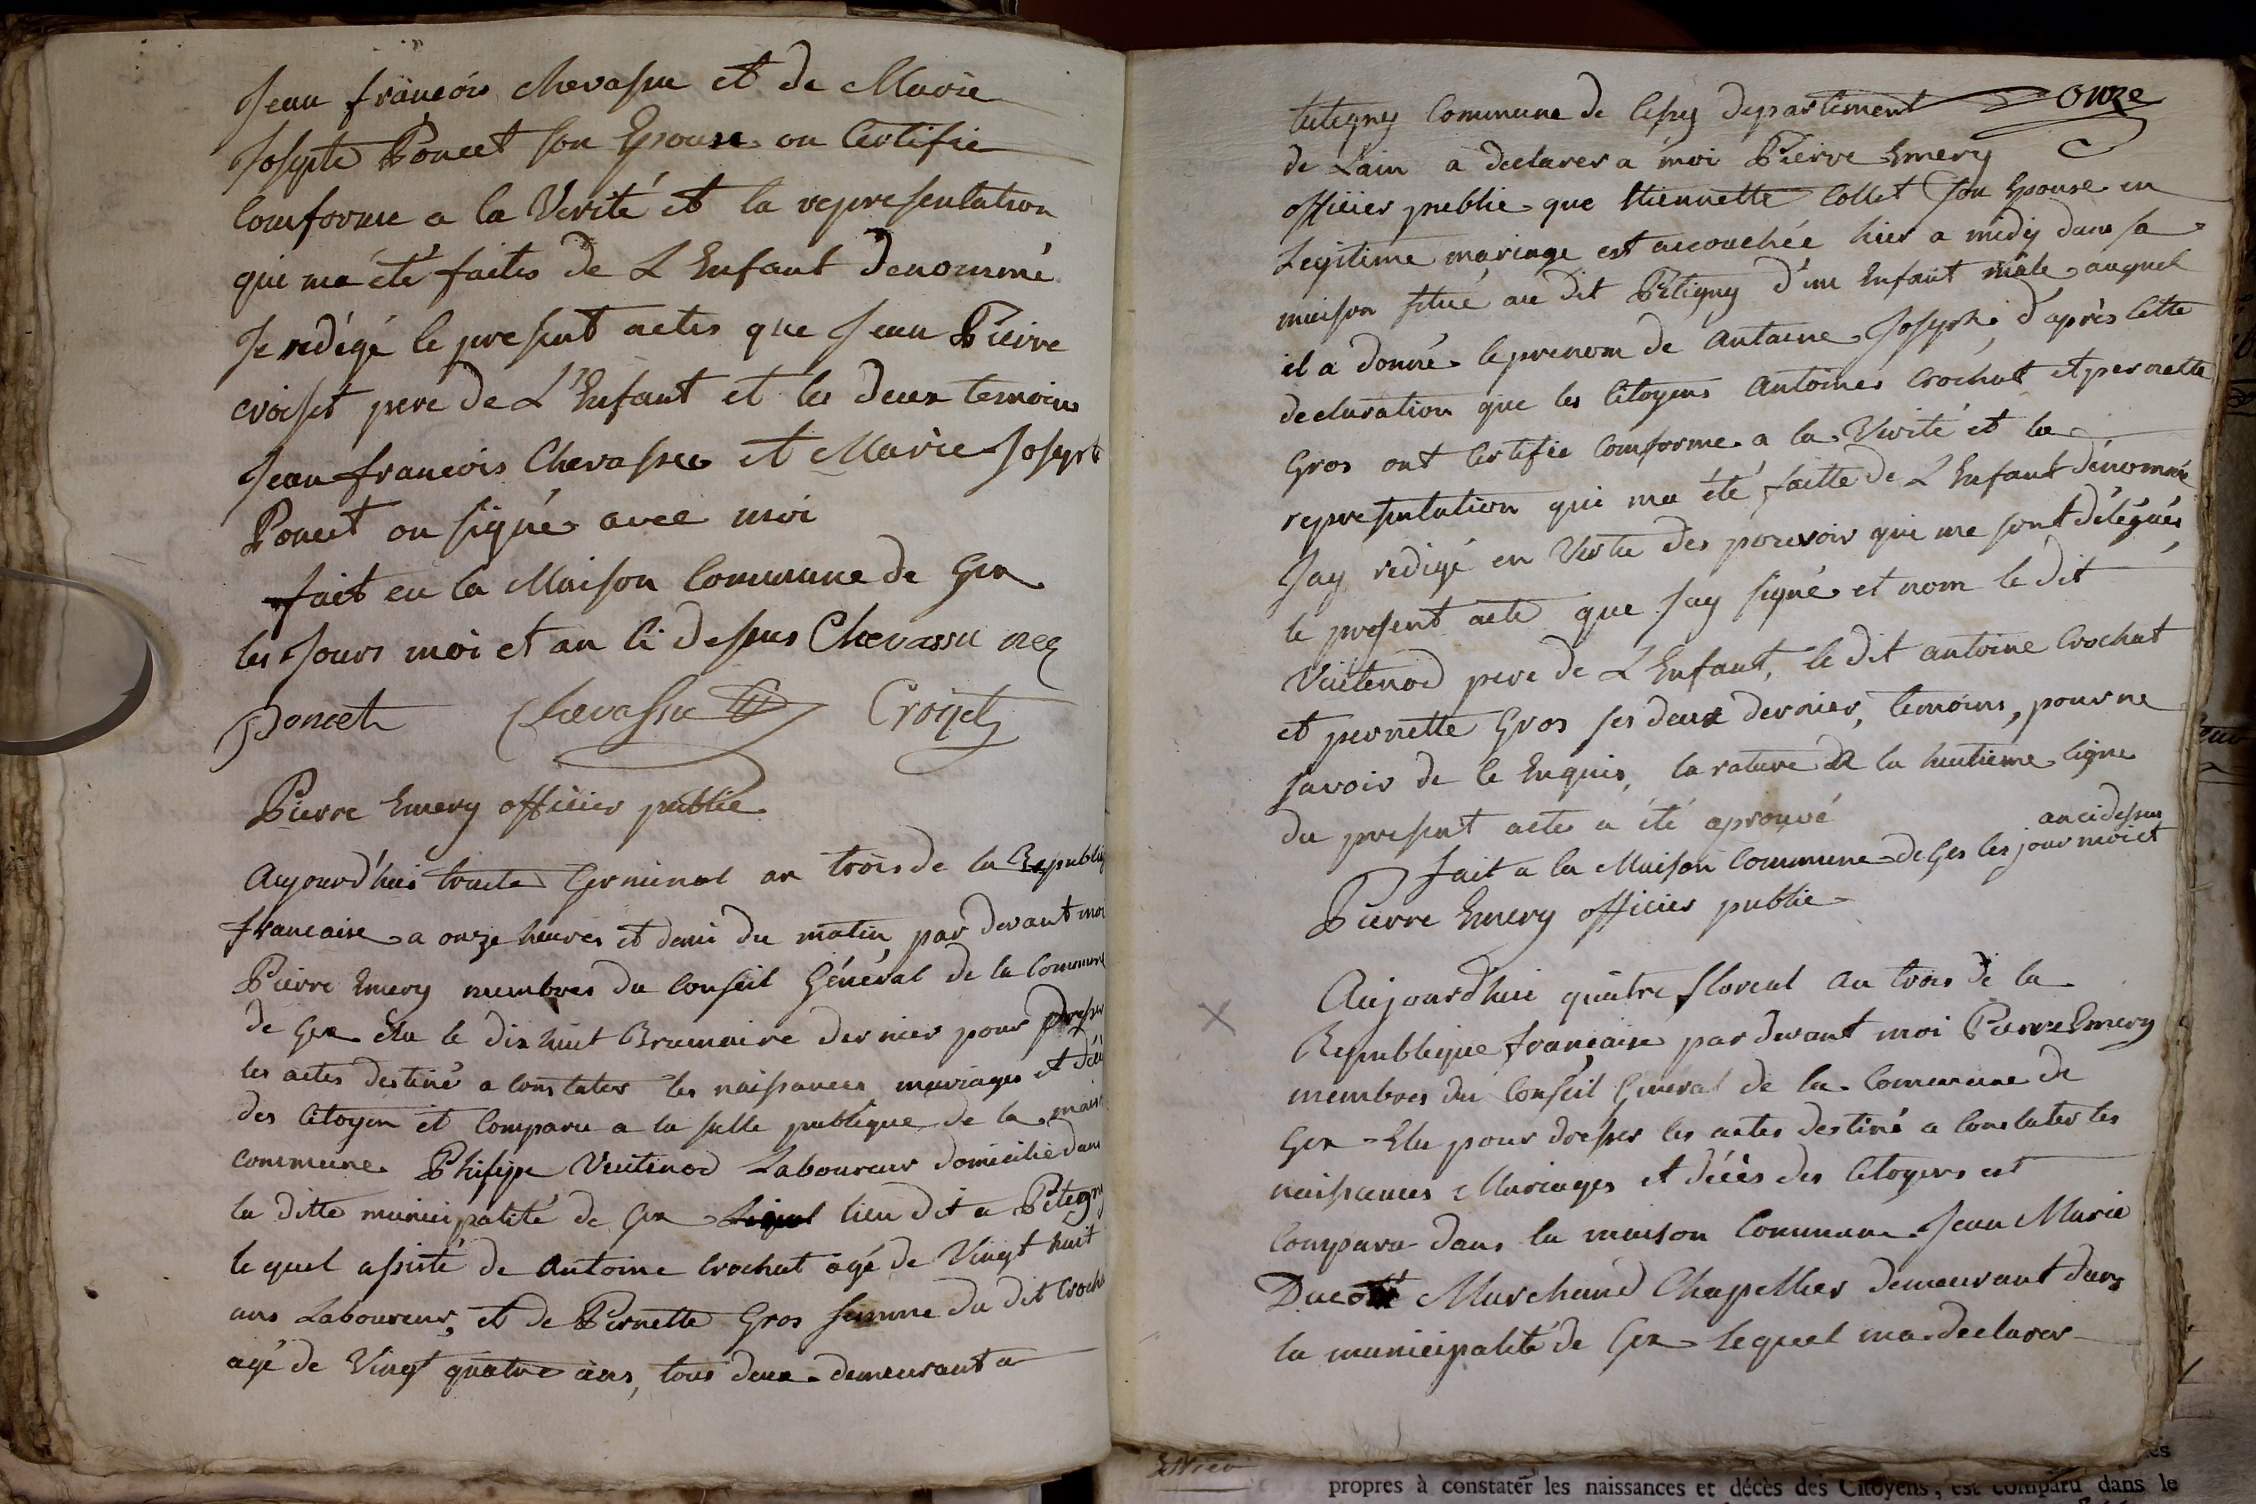 Jean françois chevassu et de Marie
Josepte Poncet son Epouse on Certifie
Comforme a la Verité et la representation
qui ma été faites de L Enfant denommé
Je redigé le present actes que Jean Pierre
croiset pere de L'Enfant et les deux temoins
Jean francois Chevassu et Marie Josept
Poncet on signé avec moi
fait en la Maison Commune de Gex
les Jours moi et an ci dessus Chevassu
Poncet Chevassu Croizet
Pierre Emery officier public
Aujourd'hui trente Germinal an trois de la Republiq
francaise a onze heures et demi du matin, par devant moi
Pierre Emery membres du Conseil Général de la Commune
de Gex élu le dix huit Brumaire dernier pour dresser
les actes destiné a constater les naissances mariages et décè
des Citoyen et Comparu a la salle publique de la maiso
commune Philipe Vuitenod Laboureur domicilié dans
la ditte municipalité de Gex lieu dit a Pitegny
le quel assisté de Antoine Crochat agé de Vingt huit
ans Laboureur, et de Pernette Gros femme du dit Crocha
agé de Vingt quatre ans, tous deux demeurant a
onze
tutegny Commune de Cessy departement
de Lain a declarer a moi Pierre Emery
officier public que Etiennette Collet son Epouse en
Legitime mariage est accouchée hier a midy dans sa
maison situé au dit Pitigny d'un Enfant mâle auquel
il a donné le prenom de Antoine Joseph, d'après cette
declaration que les Citoyens Antoines Crochat et pernette
Gros ont Certifie Comforme a la Verité et la
representation qui ma été faitte de L'Enfant dénommé
Jay redigé en Vertu des pouvoir qui me sont délégués,
le present acte que Jay signé et nom le dit
Vuitenod pere de L'Enfant, le dit antoine Crochat
et pernette Gros ses deux dernier, temoins, pour ne
savoir de ce Enquis, la rature de la huitieme ligne
du present actes a été aprouvé
an ci dessus
fait a la Maison Commune de Gex les jour moi et
Pierre Emery officier public
Aujourd'hui quatre floreal an trois de la
Republique française par devant moi Pierre Emery
membres du Conseil General de la Commune de
Gex Elu pour dresser les actes destiné a constater les
naissances Mariages et décès des Citoyens est
Comparu dans la maison Commune Jean Marie
Marchand Chapellier demeurant dans
la municipalité de Gex Lequel ma declarer
propres à constater les naissances et décès des Citoyens, est comparu dans le